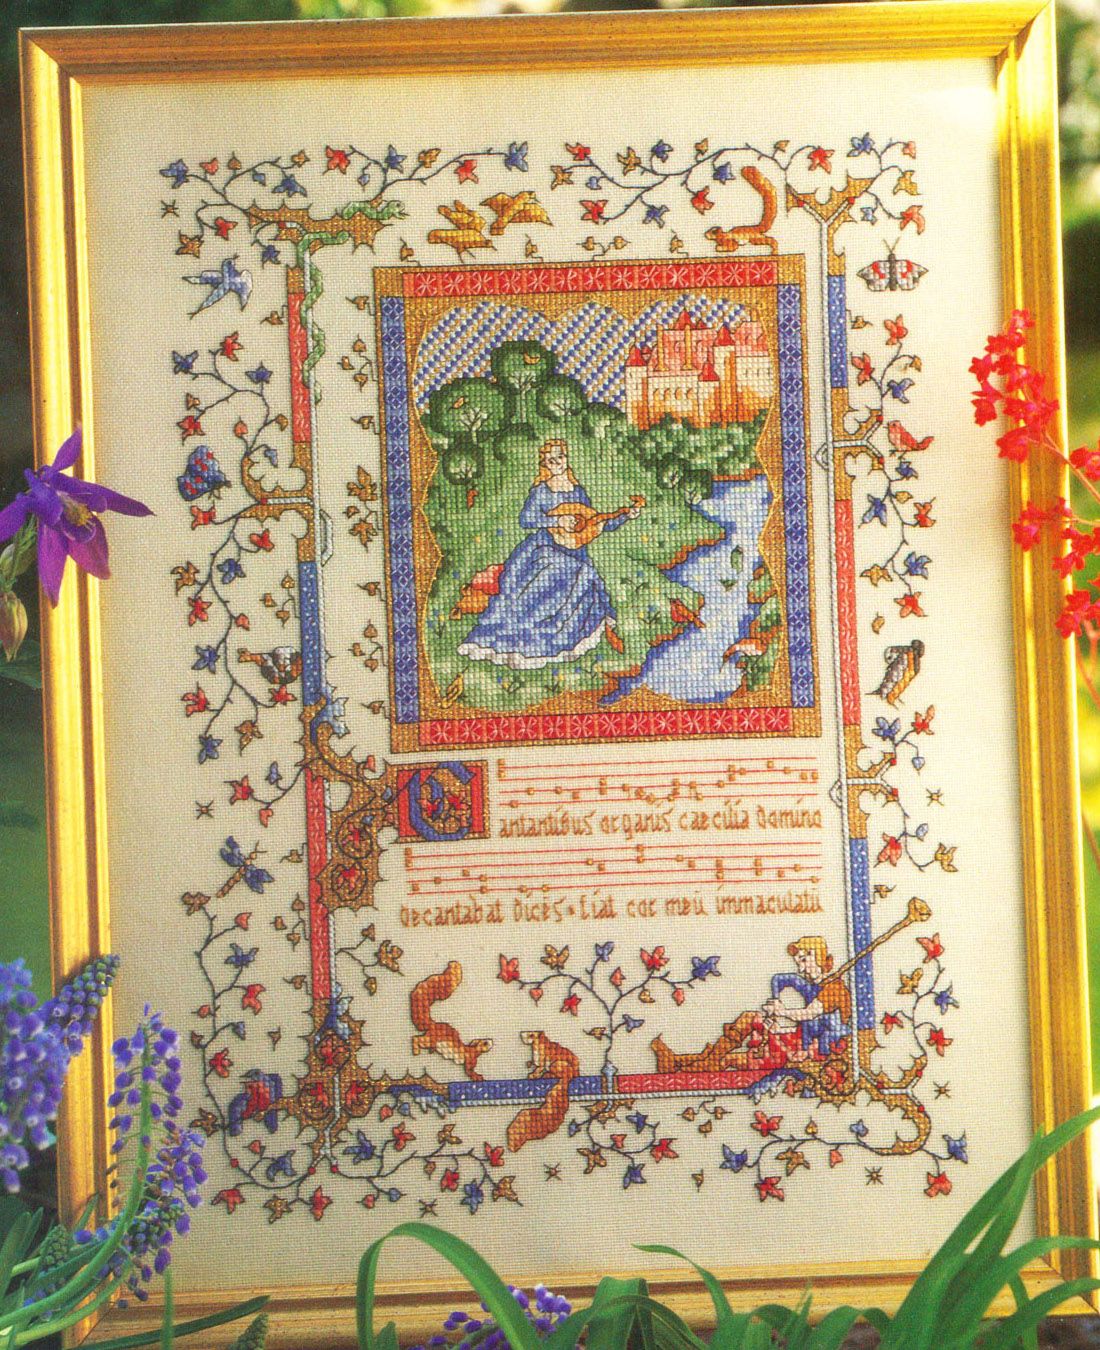 Cantantibus organis caecilia domino
decantabat dices fiat cor meu immaculatu